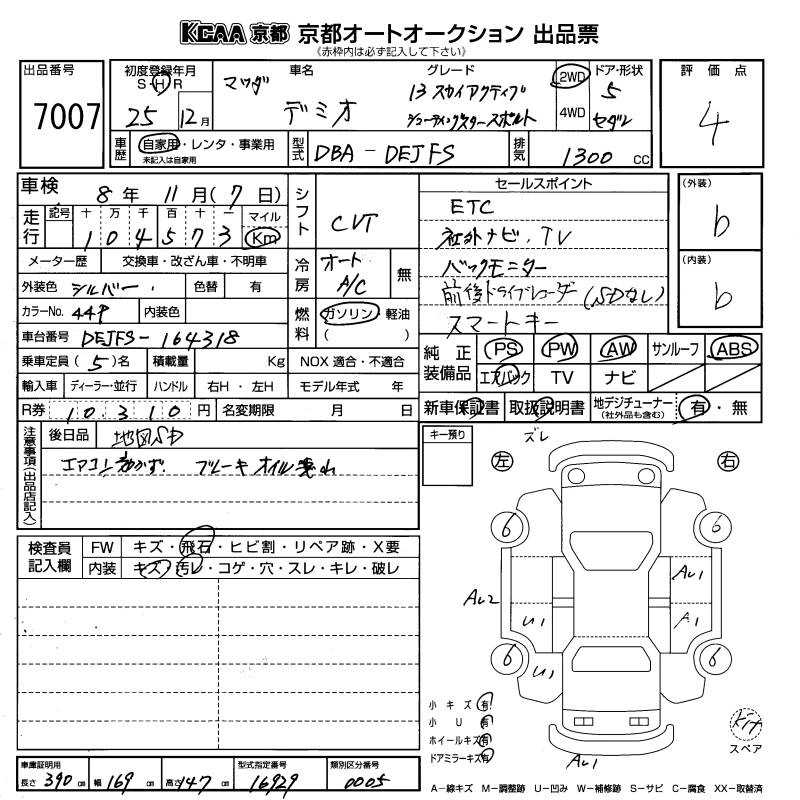 KCAA 京都 京都オートオークション 出品票
《赤枠内は必ず記入して下さい》
出品番号 7007
初度登録年月 S H R 25 12月
車名 マツダ デミオ
グレード 13 スカイアクティブ
シューティングスタースポルト
2WD 4WD
ドア・形状 5 セダン
評価点 4
車歴 自家用・レンタ・事業用
未記入は自家用
型式 DBA-DEJFS
排気 1300 cc
車検 8年 11月(7日)
走行 記号 十 万 千 百 十 一 マイル
104573 Km
メーター歴 交換車・改ざん車・不明車
外装色 シルバー 色替 有
カラーNo. 44P 内装色
車台番号 DEJFS-164318
乗車定員(5)名 積載量 Kg NOX 適合・不適合
輸入車 ディーラー・並行 ハンドル 右H・左H モデル年式 年
R券 10310円 名変期限 月 日
シフト CVT
冷房 オート A/C 無
燃料 ガソリン 軽油 ( )
セールスポイント
ETC
社外ナビ・TV
バックモニター
前後ドライブレコーダー(SDなし)
スマートキー
(外装) b
(内装) b
純正装備品 PS PW AW サンルーフ ABS
エアバック TV ナビ
新車保証書 取扱説明書 地デジチューナー (社外品も含む) 有・無
注意事項(出品店記入)
後日品 地図SD
エアコン効かず ブレーキオイル
キー預り
ズレ
左 右
検査員記入欄
FW キズ・飛石・ヒビ割・リペア跡・X要
内装 キズ・汚レ・コゲ・穴・スレ・キレ・破レ
6 6
AU1
AU2 U1 A1
6 U1 6
小キズ 有
小U 有
ホイールキズ 有
ドアミラーキズ 有
AU1
キット
スペア
車庫証明用 長さ 390cm 幅 169cm 高さ 147cm
型式指定番号 16929
類別区分番号 0005
A-線キズ M-調整跡 U-凹み W-補修跡 S-サビ C-腐食 XX-取替済